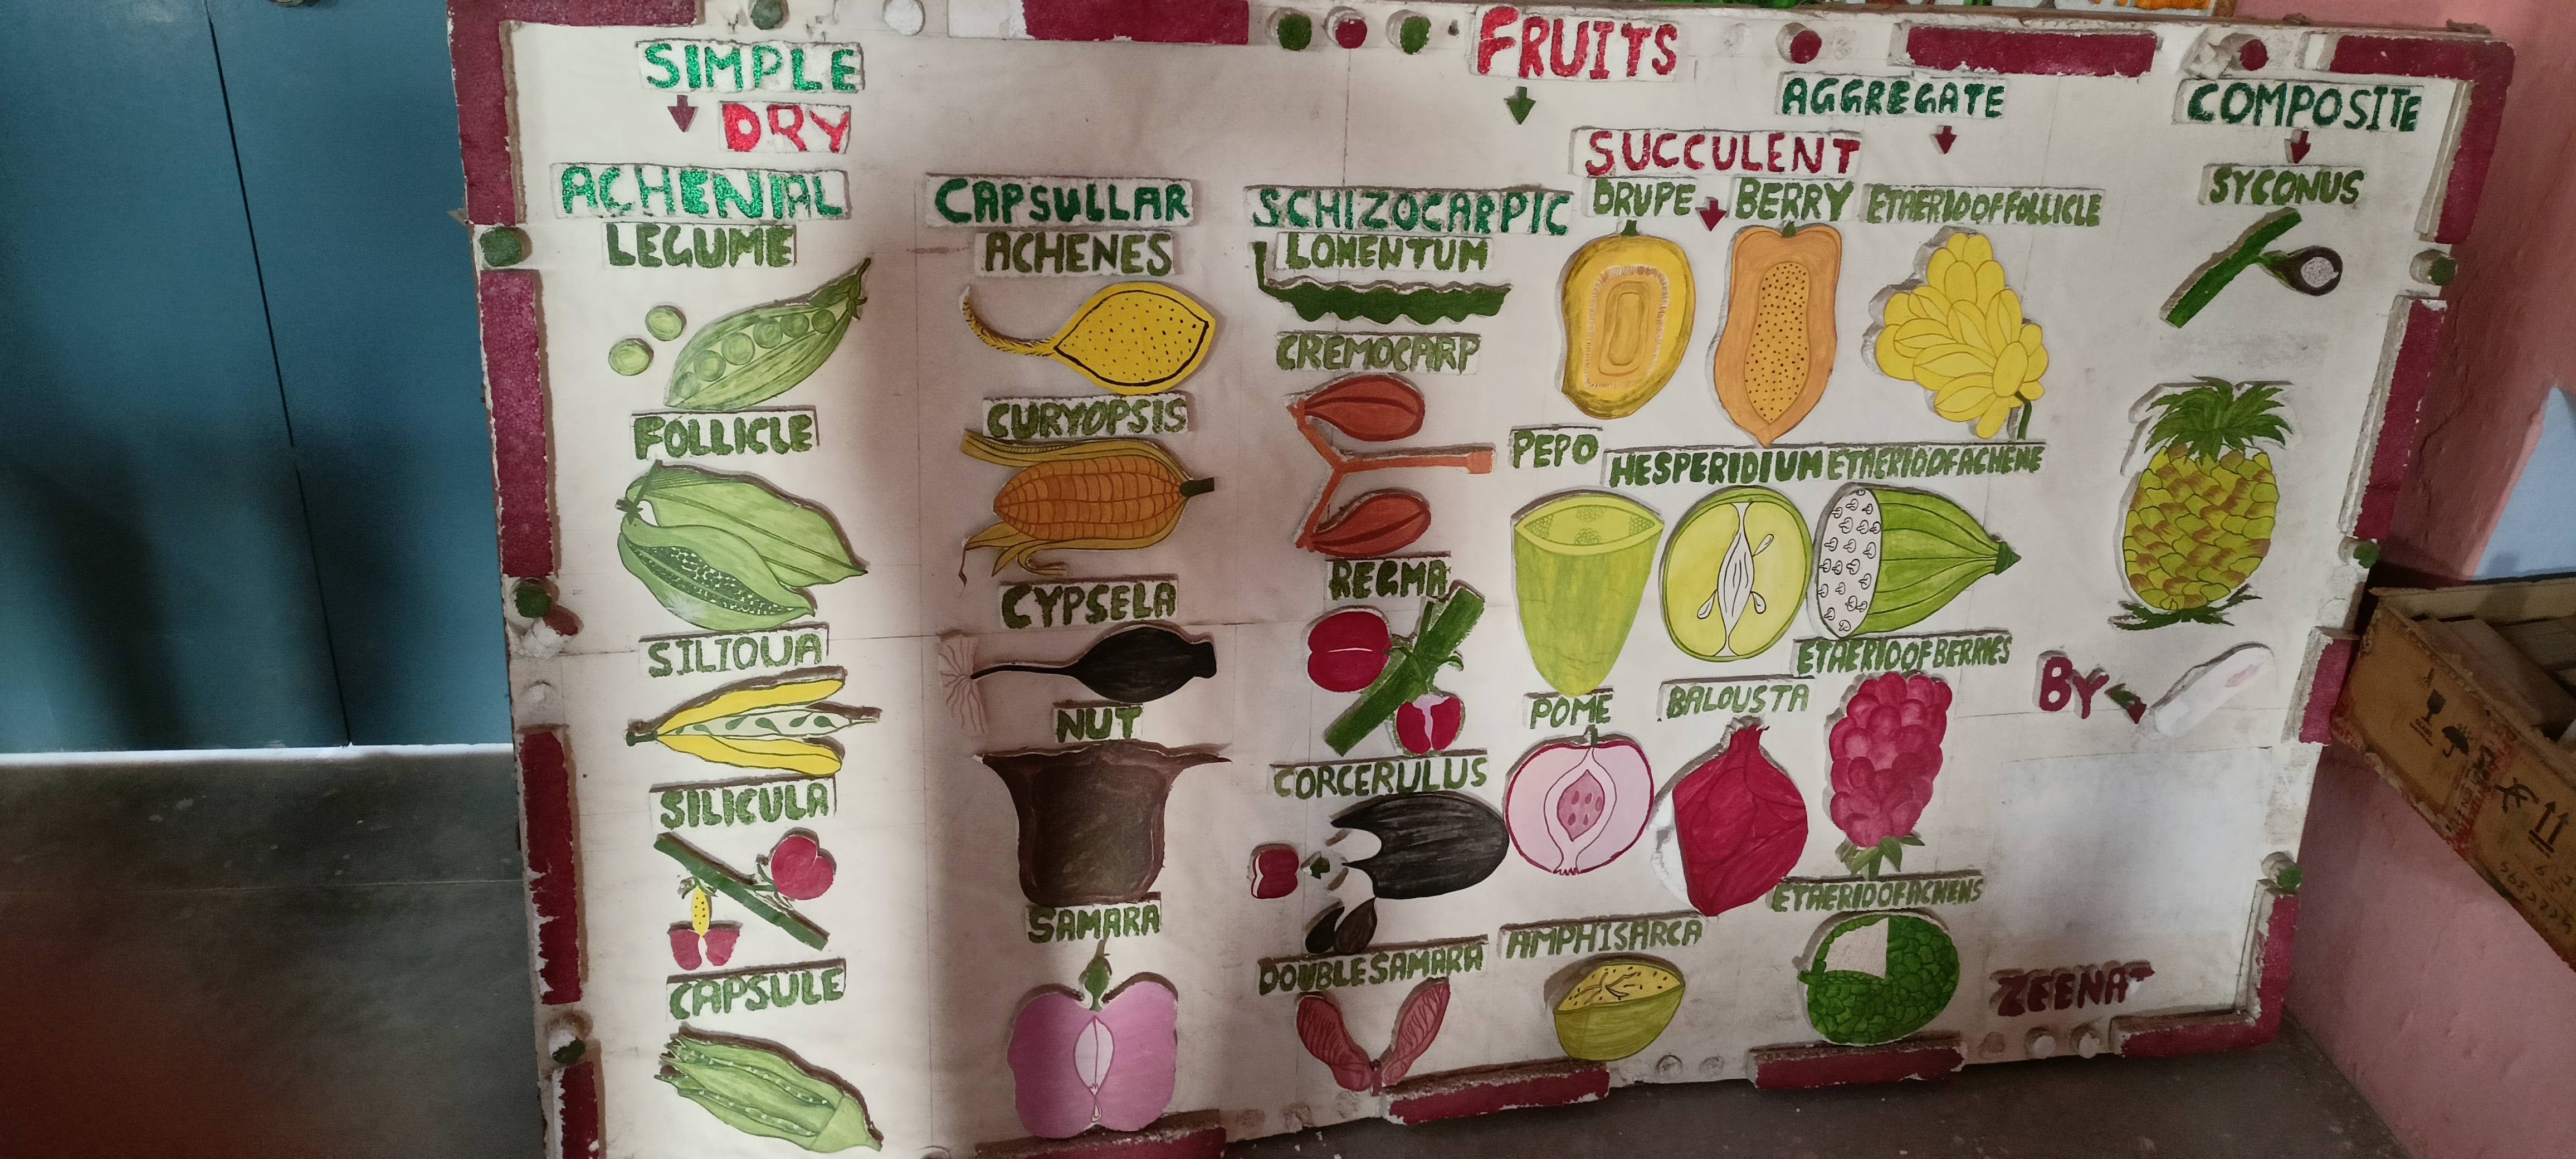 FRUITS
SIMPLE
DRY
ACHENIAL
LEGUME
FOLLICLE
SILIQUA
SILICULA
CAPSULE
CAPSULLAR
ACHENES
CURYOPSIS
CYPSELA
NUT
SAMARA
SCHIZOCARPIC
LOMENTUM
CREMOCARP
REGMA
CORCERULUS
DOUBLE SAMARA
SUCCULENT
DRUPE
BERRY
PEPO
HESPERIDIUM
POME
BALOUSTA
AMPHISARCA
AGGREGATE
ETAERIO OF FOLLICLE
ETAERIO OF ACHENE
ETAERIO OF BERRIES
ETAERIO OF ACHENS
COMPOSITE
SYCONUS
BY
ZEENAT